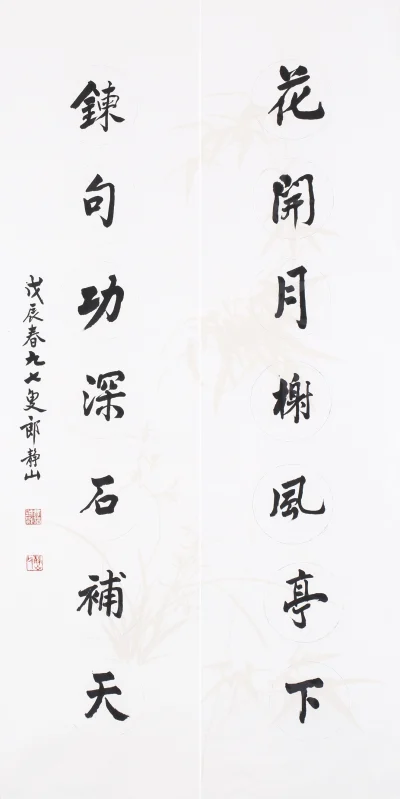 花開月榭風亭下
鍊句功深石補天
戊辰春九七叟郎靜山